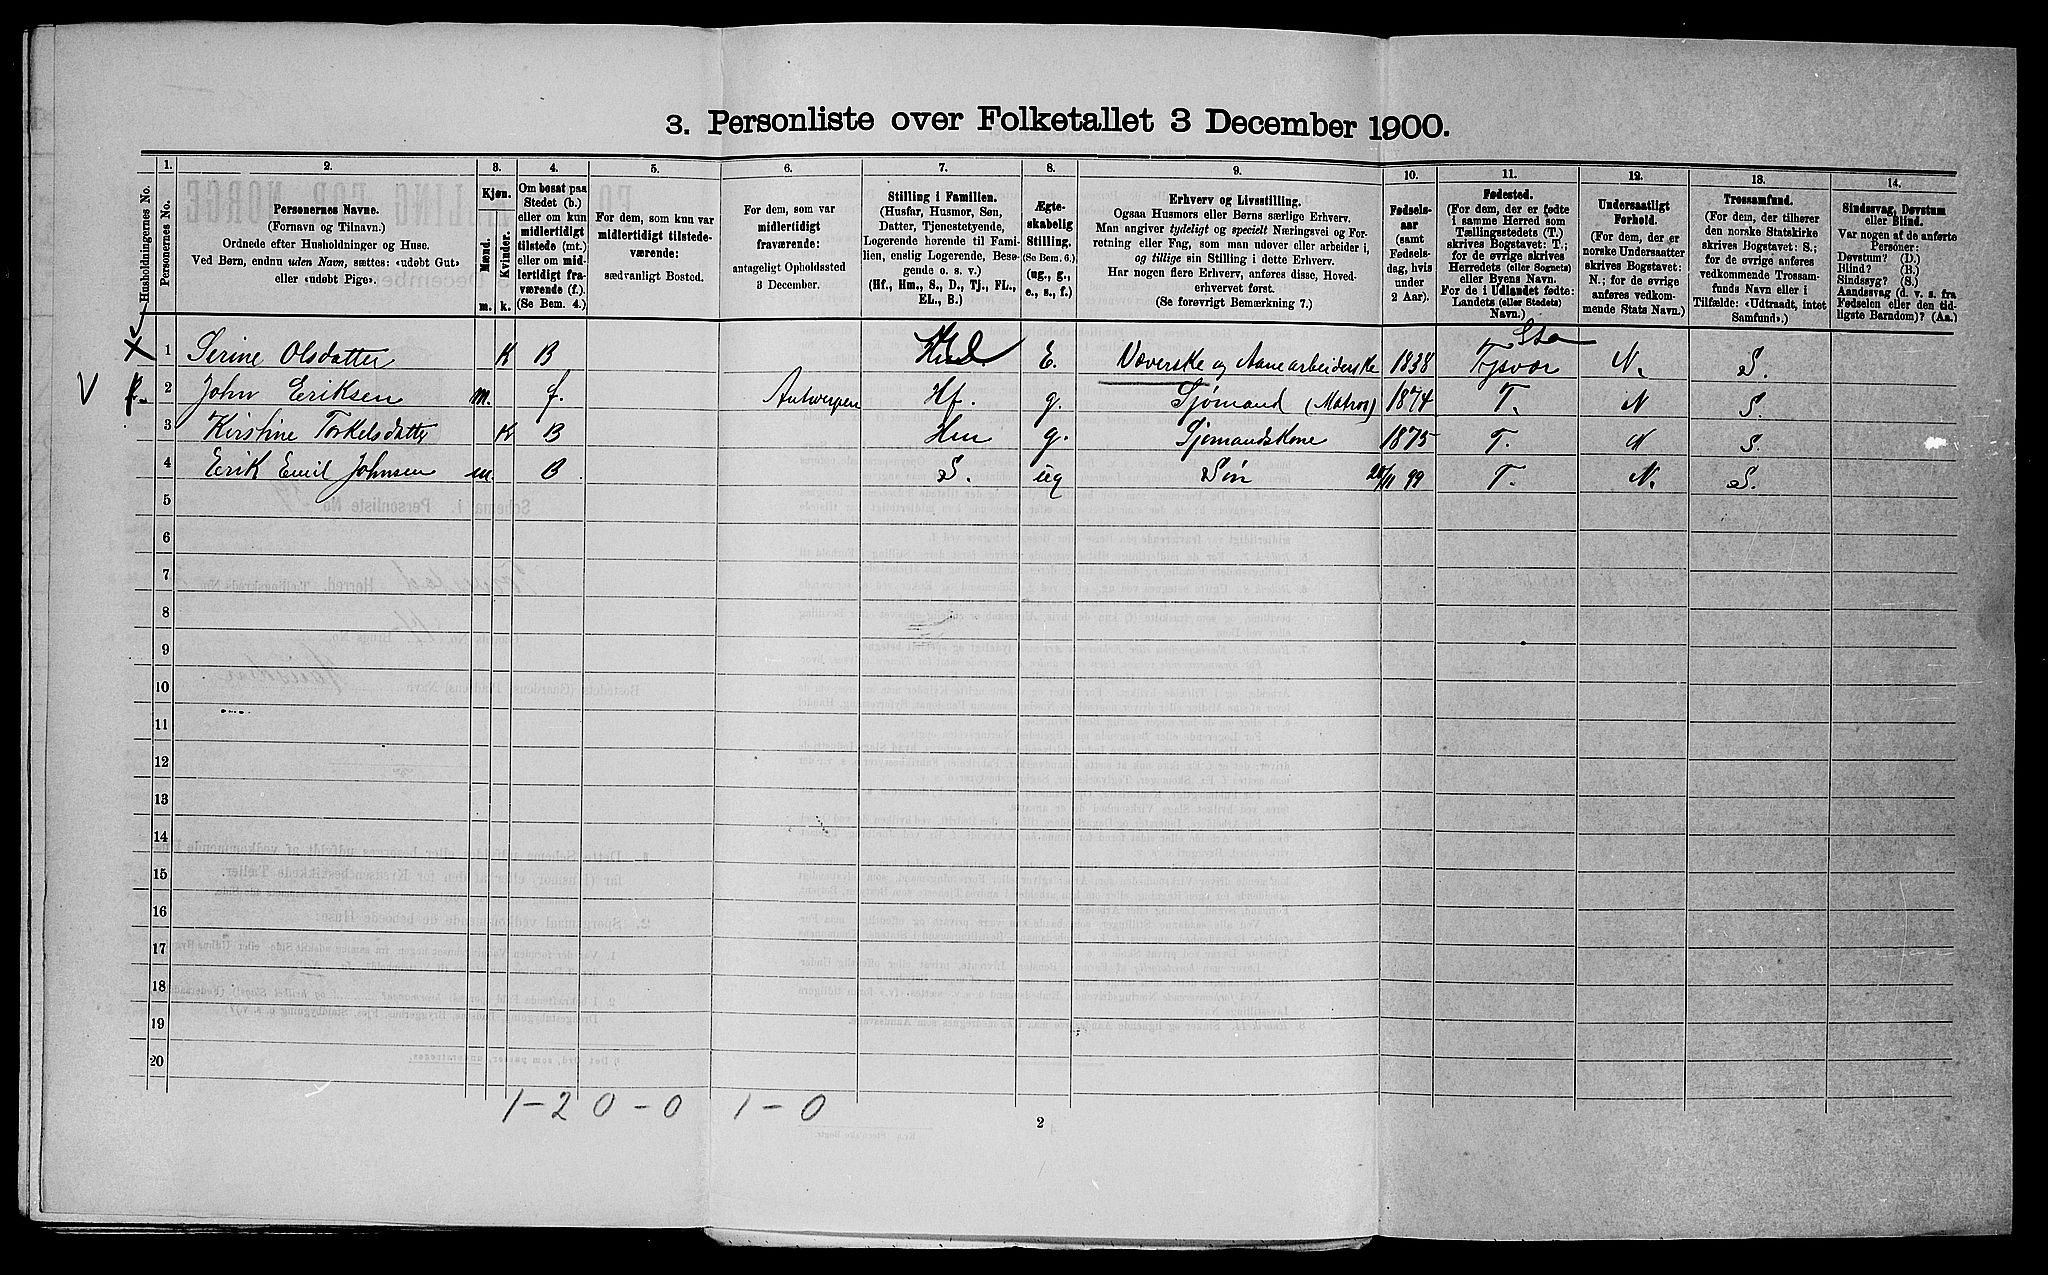 3. Personliste over Folketallet 3 December 1900.
Husholdningernes No.
1.
Personernes No.
2.
Personernes Navne.
(Fornavn og Tilnavn.)
Ordnede efter Husholdninger og Huse.
Ved Børn, endnu uden Navn, sættes: «udøbt Gut»
eller «udøbt Pige».
3.
Kjøn.
Mænd.
Kvinder.
m.
k.
4.
Om bosat paa
Stedet (b.)
eller om kun
midlertidigt
tilstede (mt.)
eller om mid-
lertidigt fra-
værende (f.).
(Se Bem. 4.)
5.
For dem, som kun var
midlertidigt tilstede-
værende:
sædvanligt Bosted.
6.
For dem, som var
midlertidigt
fraværende:
antageligt Opholdssted
3 December.
7.
Stilling i Familien.
(Husfar, Husmor, Søn,
Datter, Tjenestetyende,
Logerende hørende til Fami-
lien, enslig Logerende, Besø-
gende o. s. v.)
(Hf., Hm., S., D., Tj., FL.,
EL., B.)
8.
Ægte-
skabelig
Stilling.
(Se Bem. 6.)
(ug., g.,
e., s., f.)
9.
Erhverv og Livsstilling.
Ogsaa Husmors eller Børns særlige Erhverv.
Man angiver tydeligt og specielt Næringsvei og For-
retning eller Fag, som man udøver eller arbeider i,
og tillige sin Stilling i dette Erhverv.
Har nogen flere Erhverv, anføres disse, Hoved-
erhvervet først.
(Se forøvrigt Bemærkning 7.)
10.
Fødsels-
aar
(samt
Fødsels-
dag, hvis
under
2 Aar).
11.
Fødested.
(For dem, der er fødte
i samme Herred som
Tællingsstedets (T.)
skrives Bogstavet: T.;
for de øvrige skrives
Herredets (eller Sognets)
eller Byens Navn.
For de i Udlandet fødte:
Landets (eller Stedets)
Navn.)
12.
Undersaatligt
Forhold.
(For dem, der er
norske Undersaatter
skrives Bogstavet:
N.; for de øvrige
anføres vedkom-
mende Stats Navn.)
13.
Trossamfund.
(For dem, der tilhører
den norske Statskirke
skrives Bogstavet: S.;
for de øvrige anføres
vedkommende Trossam-
funds Navn eller i
Tilfælde: «Udtraadt, intet
Samfund».)
14.
Sindssvag, Døvstum
eller Blind.
Var nogen af de anførte
Personer:
Døvstum? (D.)
Blind? (B.)
Sindssyg? (S.)
Aandssvag (d. v. s. fra
Fødselen eller den tid-
ligste Barndom)? (Aa.)
X 1 Serine Olsdatter K B E. Væverske og Aanearbeiderske 1838 Tysvær N. S.
V 2 John Eriksen m. f. Antwerpen Hf. g. Sjømand (Matros) 1874 T. N S.
3 Kirstine Torkelsdatter K B Hm g. Sjømandskone 1875 T. N S.
4 Erik Emil Johnsen m. B S. ug Søn 20/11 99 T. N. S.
5
6
7
8
9
10
11
12
13
14
15
16
17
18
19
20
1-2 0-0 1-0
2